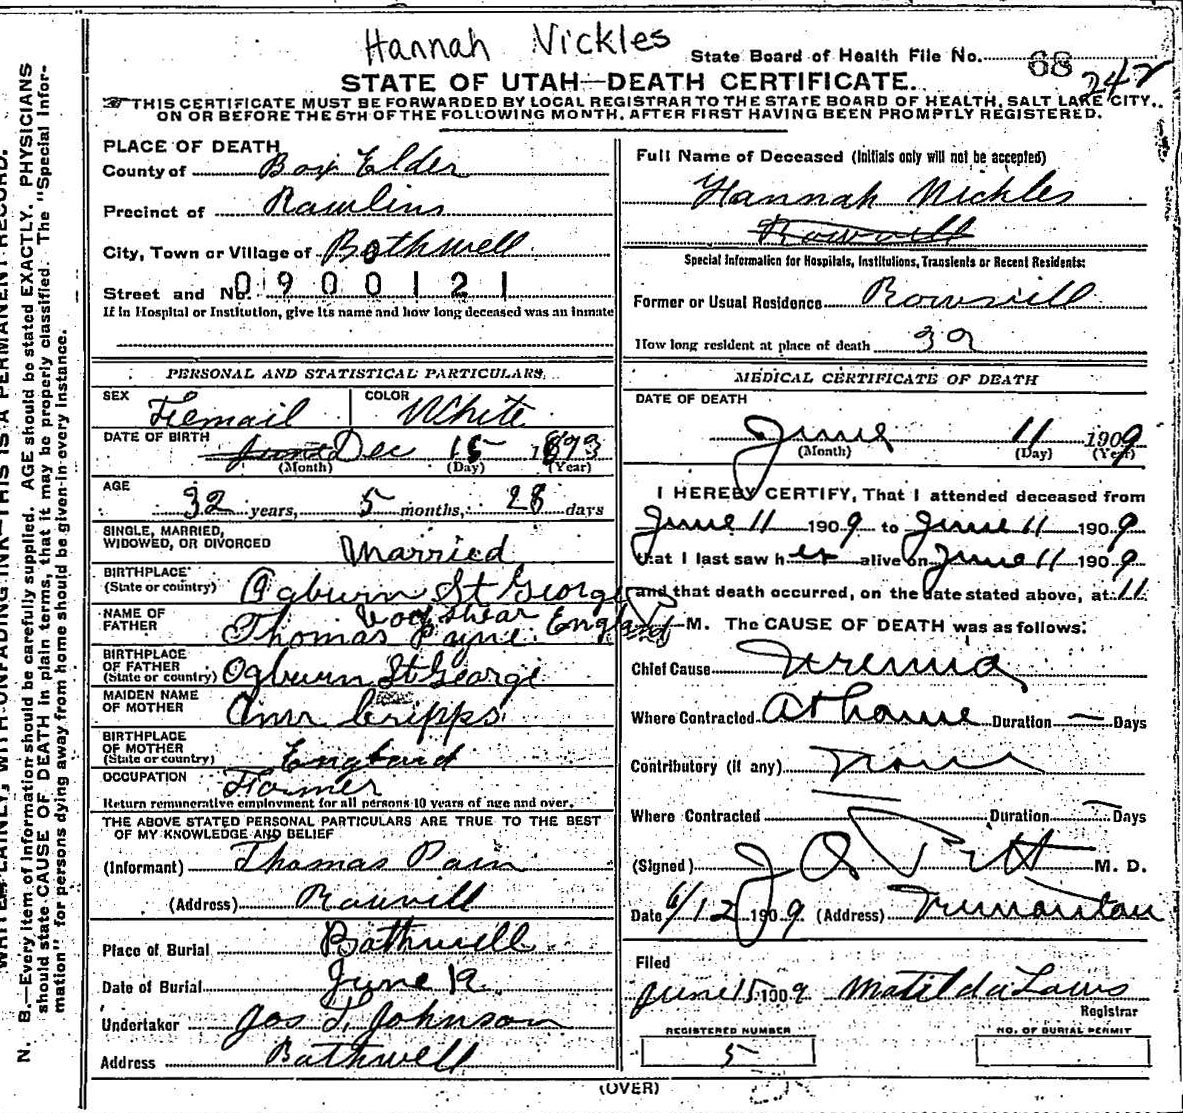 Hannah Nickles
State Board of Health File No. 68
242
STATE OF UTAH—DEATH CERTIFICATE.
THIS CERTIFICATE MUST BE FORWARDED BY LOCAL REGISTRAR TO THE STATE BOARD OF HEALTH, SALT LAKE CITY,
ON OR BEFORE THE 5TH OF THE FOLLOWING MONTH, AFTER FIRST HAVING BEEN PROMPTLY REGISTERED.
PLACE OF DEATH
County of Box Elder
Precinct of Rawlins
City, Town or Village of Bothwell
Street and No. 0900121
If in Hospital or Institution, give its name and how long deceased was an inmate
PERSONAL AND STATISTICAL PARTICULARS.
SEX Femail COLOR White
DATE OF BIRTH June Dec 15 1873
(Month) (Day) (Year)
AGE
32 years, 5 months, 28 days
SINGLE, MARRIED,
WIDOWED, OR DIVORCED Married
BIRTHPLACE
(State or country) Ogburn St George
NAME OF
FATHER Thomas Payne England
BIRTHPLACE
OF FATHER
(State or country) Ogburn St George
MAIDEN NAME
OF MOTHER Ann Cripps
BIRTHPLACE
OF MOTHER
(State or country) England
OCCUPATION Farmer
Return remunerative employment for all persons 10 years of age and over.
THE ABOVE STATED PERSONAL PARTICULARS ARE TRUE TO THE BEST
OF MY KNOWLEDGE AND BELIEF
(Informant) Thomas Pain
(Address)
Place of Burial Bothwell
Date of Burial June 12
Undertaker Jos L Johnson
Address Bothwell
Full Name of Deceased (Initials only will not be accepted)
Hannah Nickles
Special Information for Hospitals, Institutions, Transients or Recent Residents:
Former or Usual Residence
How long resident at place of death 32
MEDICAL CERTIFICATE OF DEATH
DATE OF DEATH
June 11 1909
(Month) (Day) (Year)
I HEREBY CERTIFY, That I attended deceased from
June 11 1909 to June 11 1909
that I last saw her alive on June 11 1909
and that death occurred, on the date stated above, at 11
M. The CAUSE OF DEATH was as follows:
Chief Cause Uremia
Where Contracted At home Duration — Days
Contributory (if any) None
Where Contracted Duration — Days
(Signed) M. D.
Date 6/12 1909 (Address)
Filed
June 15 1909 Matilda Laws
Registrar
REGISTERED NUMBER
5
NO. OF BURIAL PERMIT
(OVER)
N. B.—Every item of information should be carefully supplied. AGE should be stated EXACTLY. PHYSICIANS
should state CAUSE OF DEATH in plain terms, that it may be properly classified. The "Special Infor-
mation" for persons dying away from home should be given in every instance.
WITH UNFADING INK—THIS IS A PERMANENT RECORD.